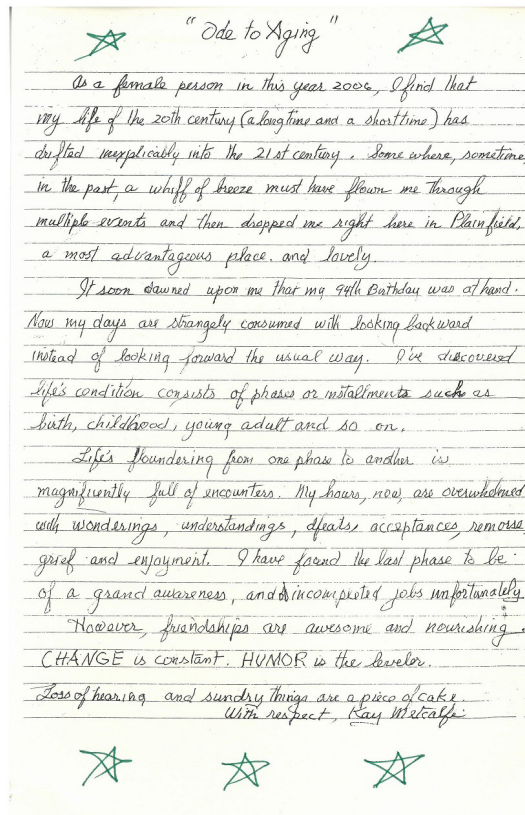 "Ode to Aging"
As a female person in this year 2006, I find that
my life of the 20th century (a longtime and a shorttime) has
drifted inexplicably into the 21st century. Some where, sometime
in the past, a whiff of breeze must have flown me through
multiple events and then dropped me right here in Plainfield,
a most advantageous place. and lovely.
It soon dawned upon me that my 94th Birthday was at hand.
Now my days are strangely consumed with looking backward
instead of looking forward the usual way. I've discovered
life's condition consists of phases or installments such as
birth, childhood, young adult and so on.
Life's floundering from one phase to another is
magnificently full of encounters. My hours, now, are overwhelmed
with wonderings, understandings, defeats, acceptances, remorse,
grief and enjoyment. I have found the last phase to be
of a grand awareness, and incompleted jobs unfortunately.
However, friendships are awesome and nourishing.
CHANGE is constant. HUMOR is the leveler.
Loss of hearing and sundry things are a piece of cake.
With respect, Kay Metcalfe